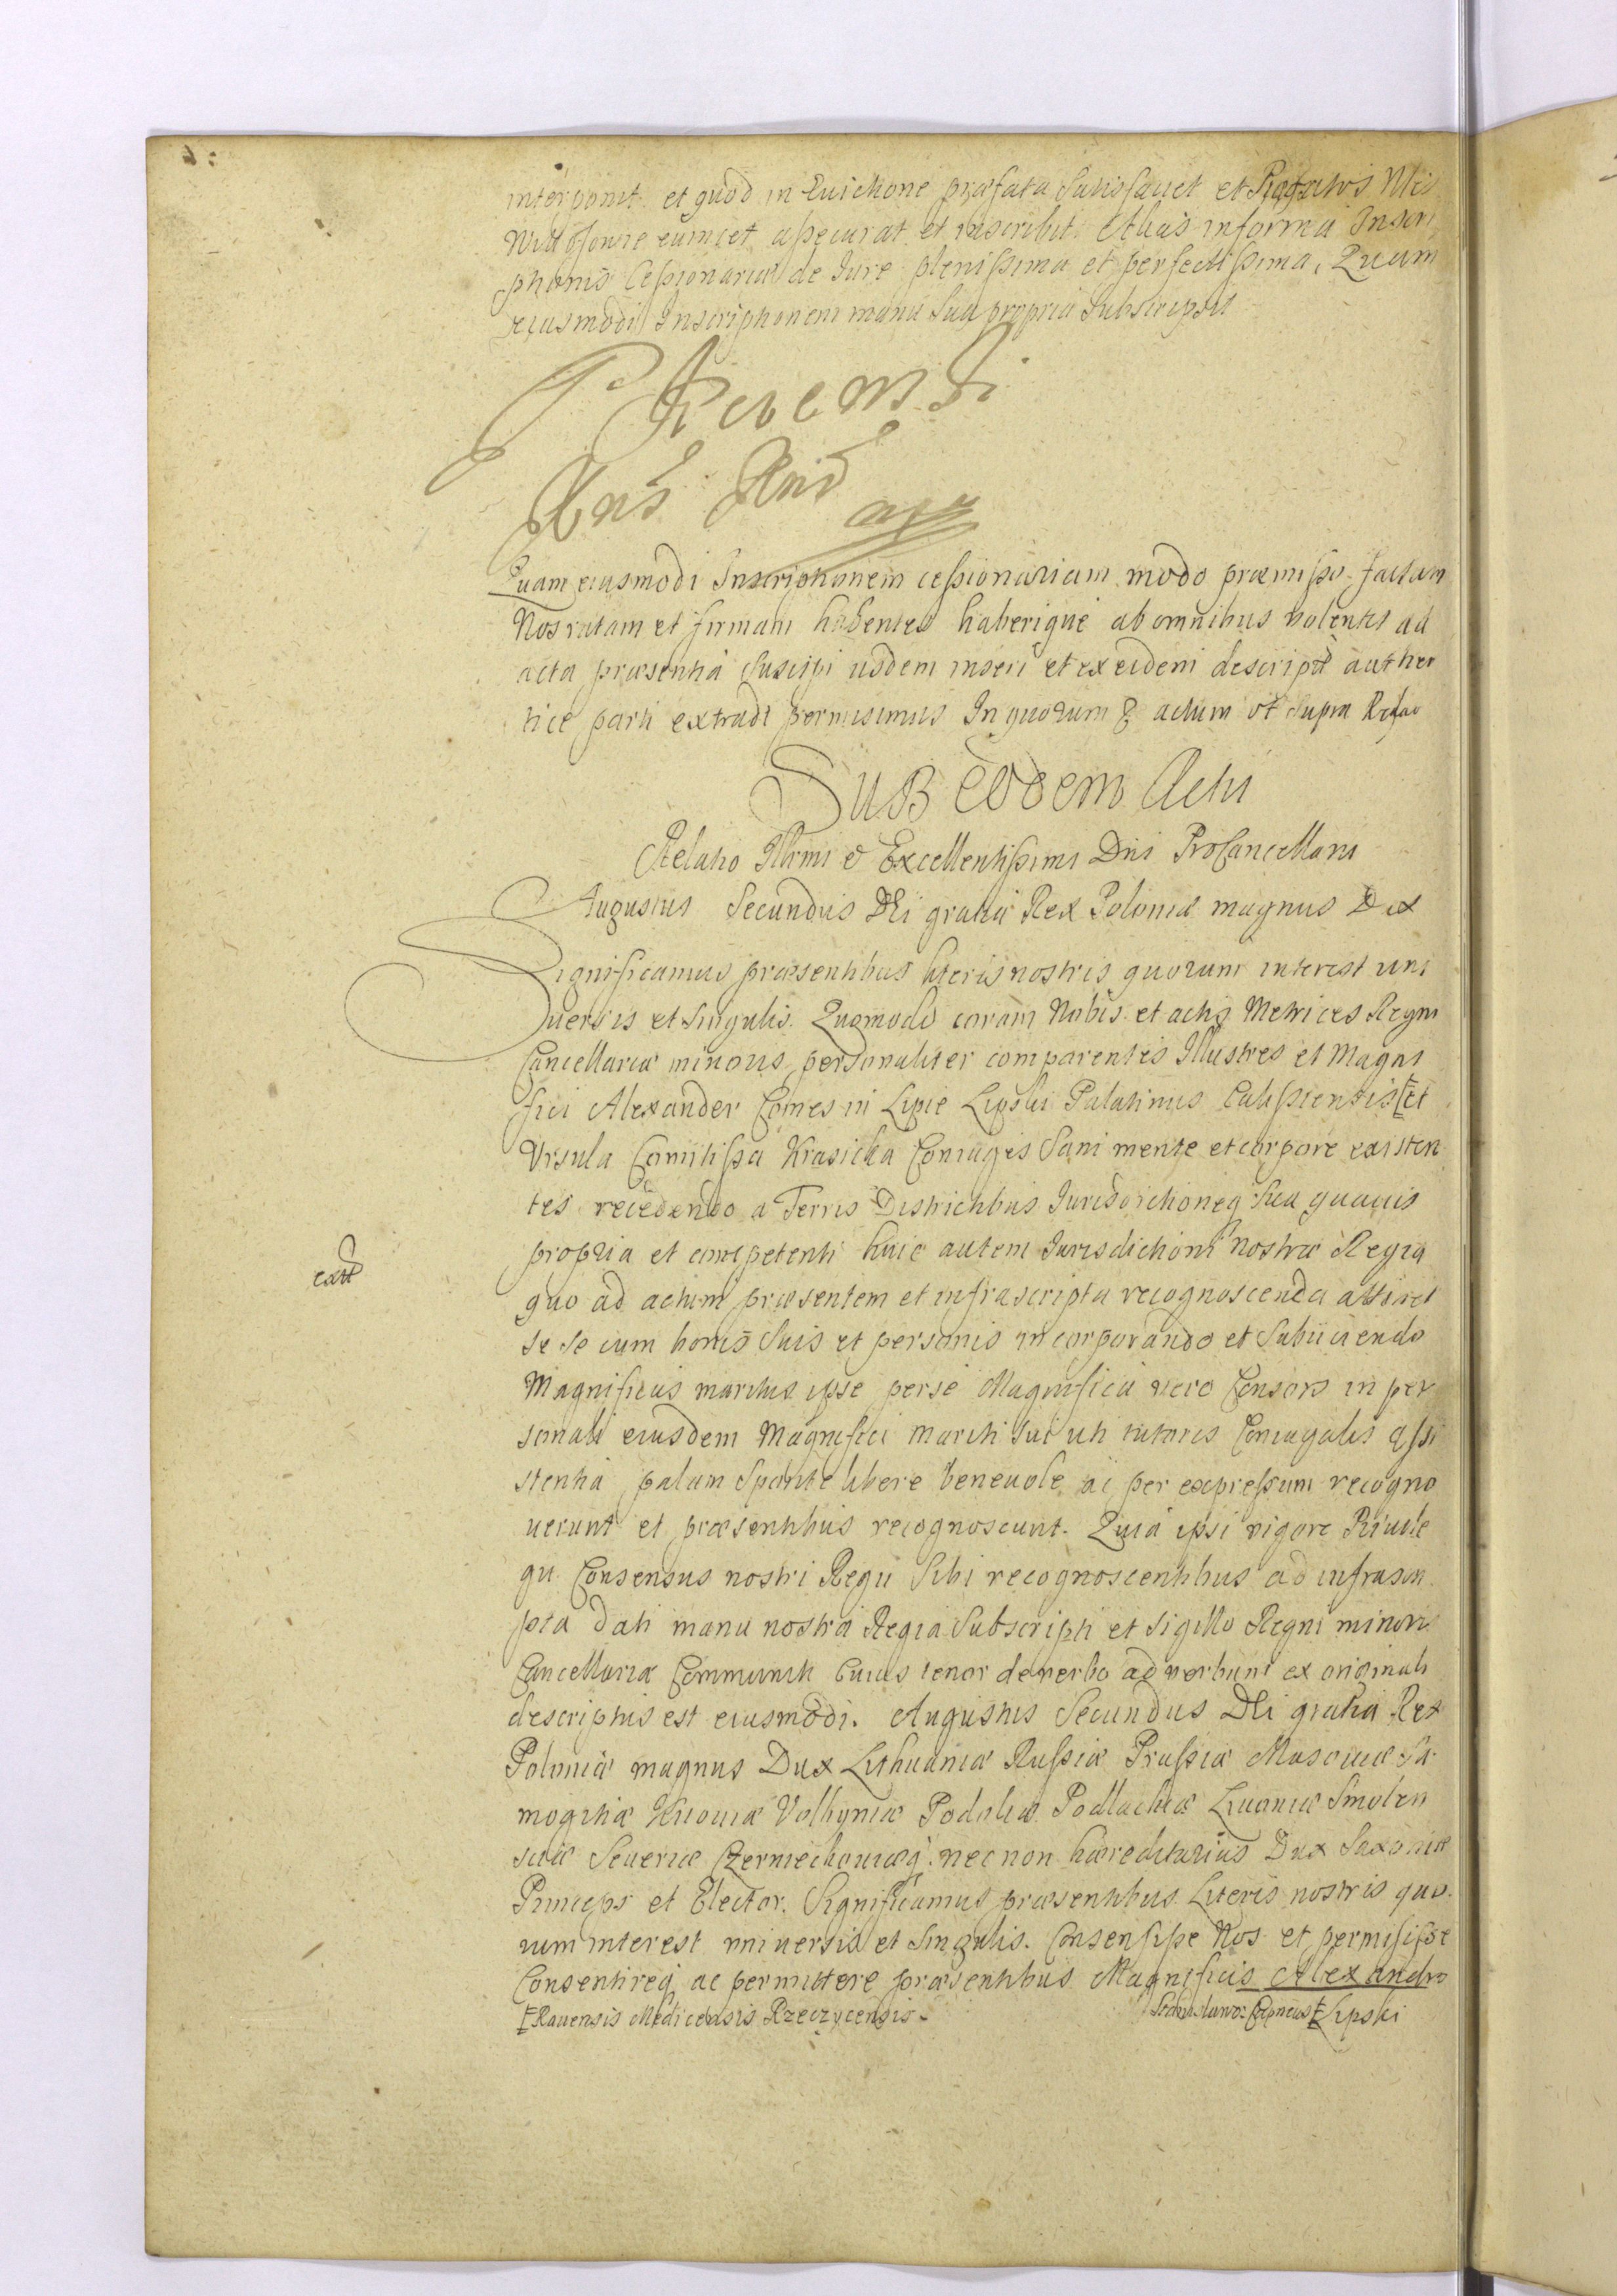 interponit et quod in Euictione præfata satisfaciet et
eumcet assecurat et inscribit. Alias in forma Inscri
ptionis Cessionariæ de Iure plenissima et perfectissima, Quam
eiusmodi Inscriptionem manu sua propria Subscripsit
Quam eiusmodi Inscriptionem cessionariam modo præmisso factam
Nos ratam et firmam habentes haberique ab omnibus volentes ad
acta præsentia suscipi iisdem inseri et ex eidem descriptū authen
tice parti extradi permisimus In quorum & actum vt supra Relatio
SUB Eodem Actu
Relatio Illrmi & Excellentissimi Dni ProCancellarii
Augustus Secundus DEi gratia Rex Poloniæ magnus Dux
Significamus præsentibus literis nostris quorum interest uni
uersis et singulis. Quomodo coram Nobis et actis Metrices Regni
Cancellariæ minoris personaliter comparentes Illustres et Magni
fici Alexander Comes in Lipie Lipski Palatinus Calissiensis Et
Vrsula Comitissa Krasicka Coniuges Sani mente et corpore existen
tes recedendo a Terris Districtibus Iurisdictioneq sua quauis
propria et competenti huic autem Iurisdictioni nostræ Regiæ
exst
quo ad actum præsentem et infrascripta recognoscenda attinet
se se cum bonis suis et personis incorporando et subiiciendo
Magnificus maritus ipse per se Magnifica vero Consors in per
sonali eiusdem Magnifici mariti sui uti tutoris Coniugalis assi
stentia palam sponte libere beneuole ac per expressum recogno
uerunt et præsentibus recognoscunt. Quia ipsi vigore Priuile
gii Consensus nostri Regii Sibi recognoscentibus ad infrascri
pta dati manu nostra Regia Subscripti et sigillo Regni minoris
Cancellariæ Communiti Cuius tenor de verbo ad verbum ex originali
descriptus est eiusmodi. Augustus Secundus DEi gratia Rex
Poloniæ magnus Dux Lithuaniæ Russiæ Prussiæ Masouiæ Sa
mogitiæ Kiiouiæ Volhyniæ Podoliæ Podlachiæ Liuoniæ Smolen
sciæ Seueriæ Czerniechouiæq. nec non hæreditarius Dux Saxoniæ
Princeps et Elector. Significamus præsentibus Literis nostris quo
rum interest uniuersis et singulis. Consensisse Nos et permisisse
Consentireq ac permittere præsentibus Magnificis Alexandro
Rauensis Medicensis Rzeczycensis. Lipski